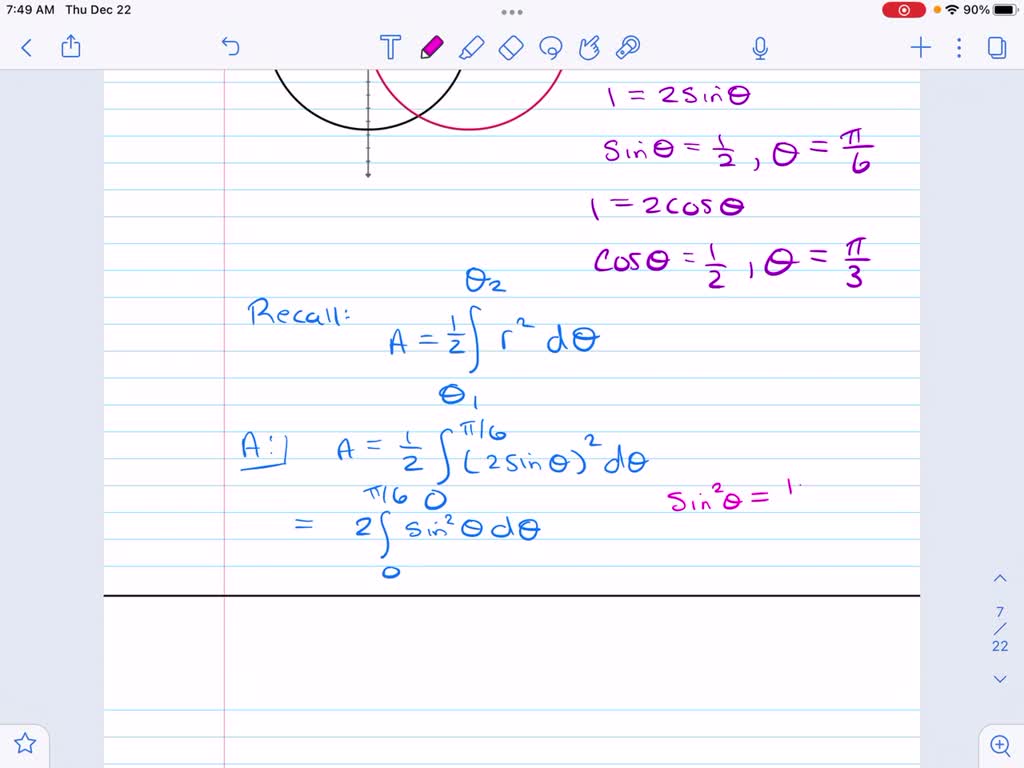 7:49 AM Thu Dec 22
90%
1 = 2sinθ
sinθ = 1/2, θ = π/6
1 = 2cosθ
cosθ = 1/2, θ = π/3
Recall:
θ2
A = 1/2 ∫ r² dθ
θ1
A: A = 1/2 ∫ (2sinθ)² dθ
π/6
0
= 2∫ sin²θ dθ
π/6
0
sin²θ = 1
7
/
22